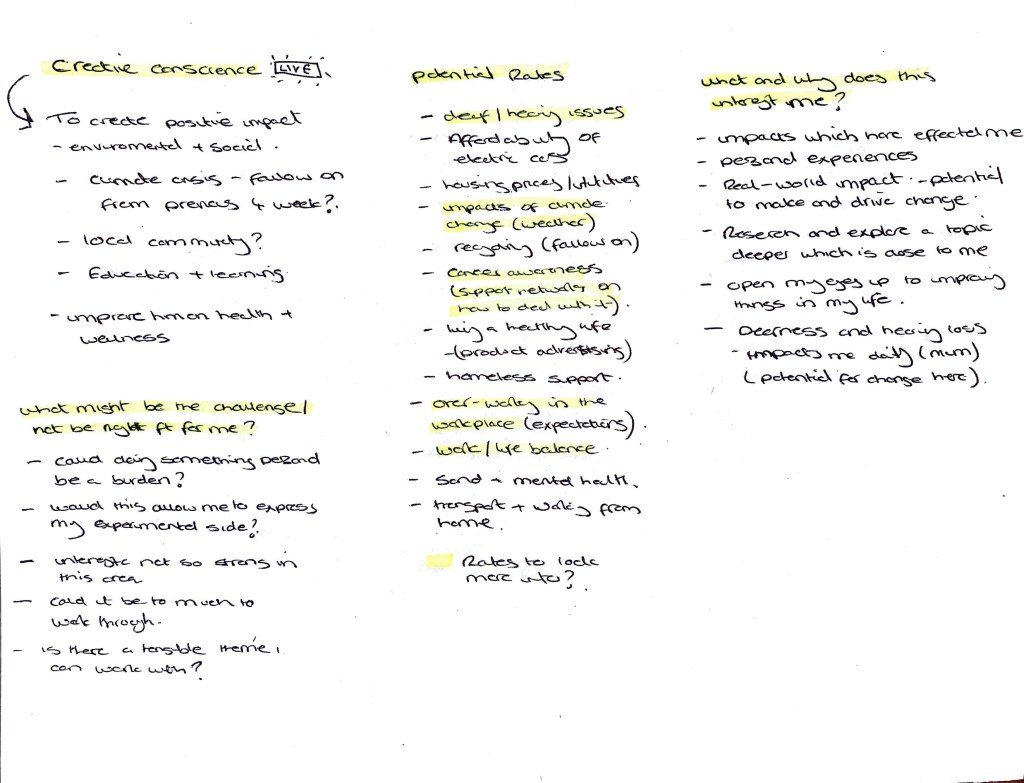 Creative conscience LIVE
To create positive impact
- enviromental + social.
- climate crisis - follow on
from previous 4 week?.
- local community?
- Education + learning.
- improve human health +
wellness
what might be the challenge/
not be right fit for me?
- could doing something personal
be a burden?
- would this allow me to express
my experimental side?
- interests not so strong in
this area
- could it be to much to
work through.
- is there a tensible theme i
can work with?
potential Routes
- deaf/hearing issues
- Affordability of
electric cars
- housing prices/utilities
- impacts of climate
change (weather)
- recycling (follow on)
- cancer awareness
(support networks on
how to deal with it).
- living a healthy life
- (product advertising)
- homeless support.
- over-working in the
workplace (expectations).
- work/life balance.
- Sound + mental health.
- transport + working from
home.
Routes to look
more into?
what and why does this
interest me?
- impacts which have effected me
- personal experiences
- Real-world impact - potential
to make and drive change.
- Research and explore a topic
deeper which is close to me
- open my eyes up to improving
things in my life.
- Deafness and hearing loss
- impacts me daily (mum)
(potential for change here).